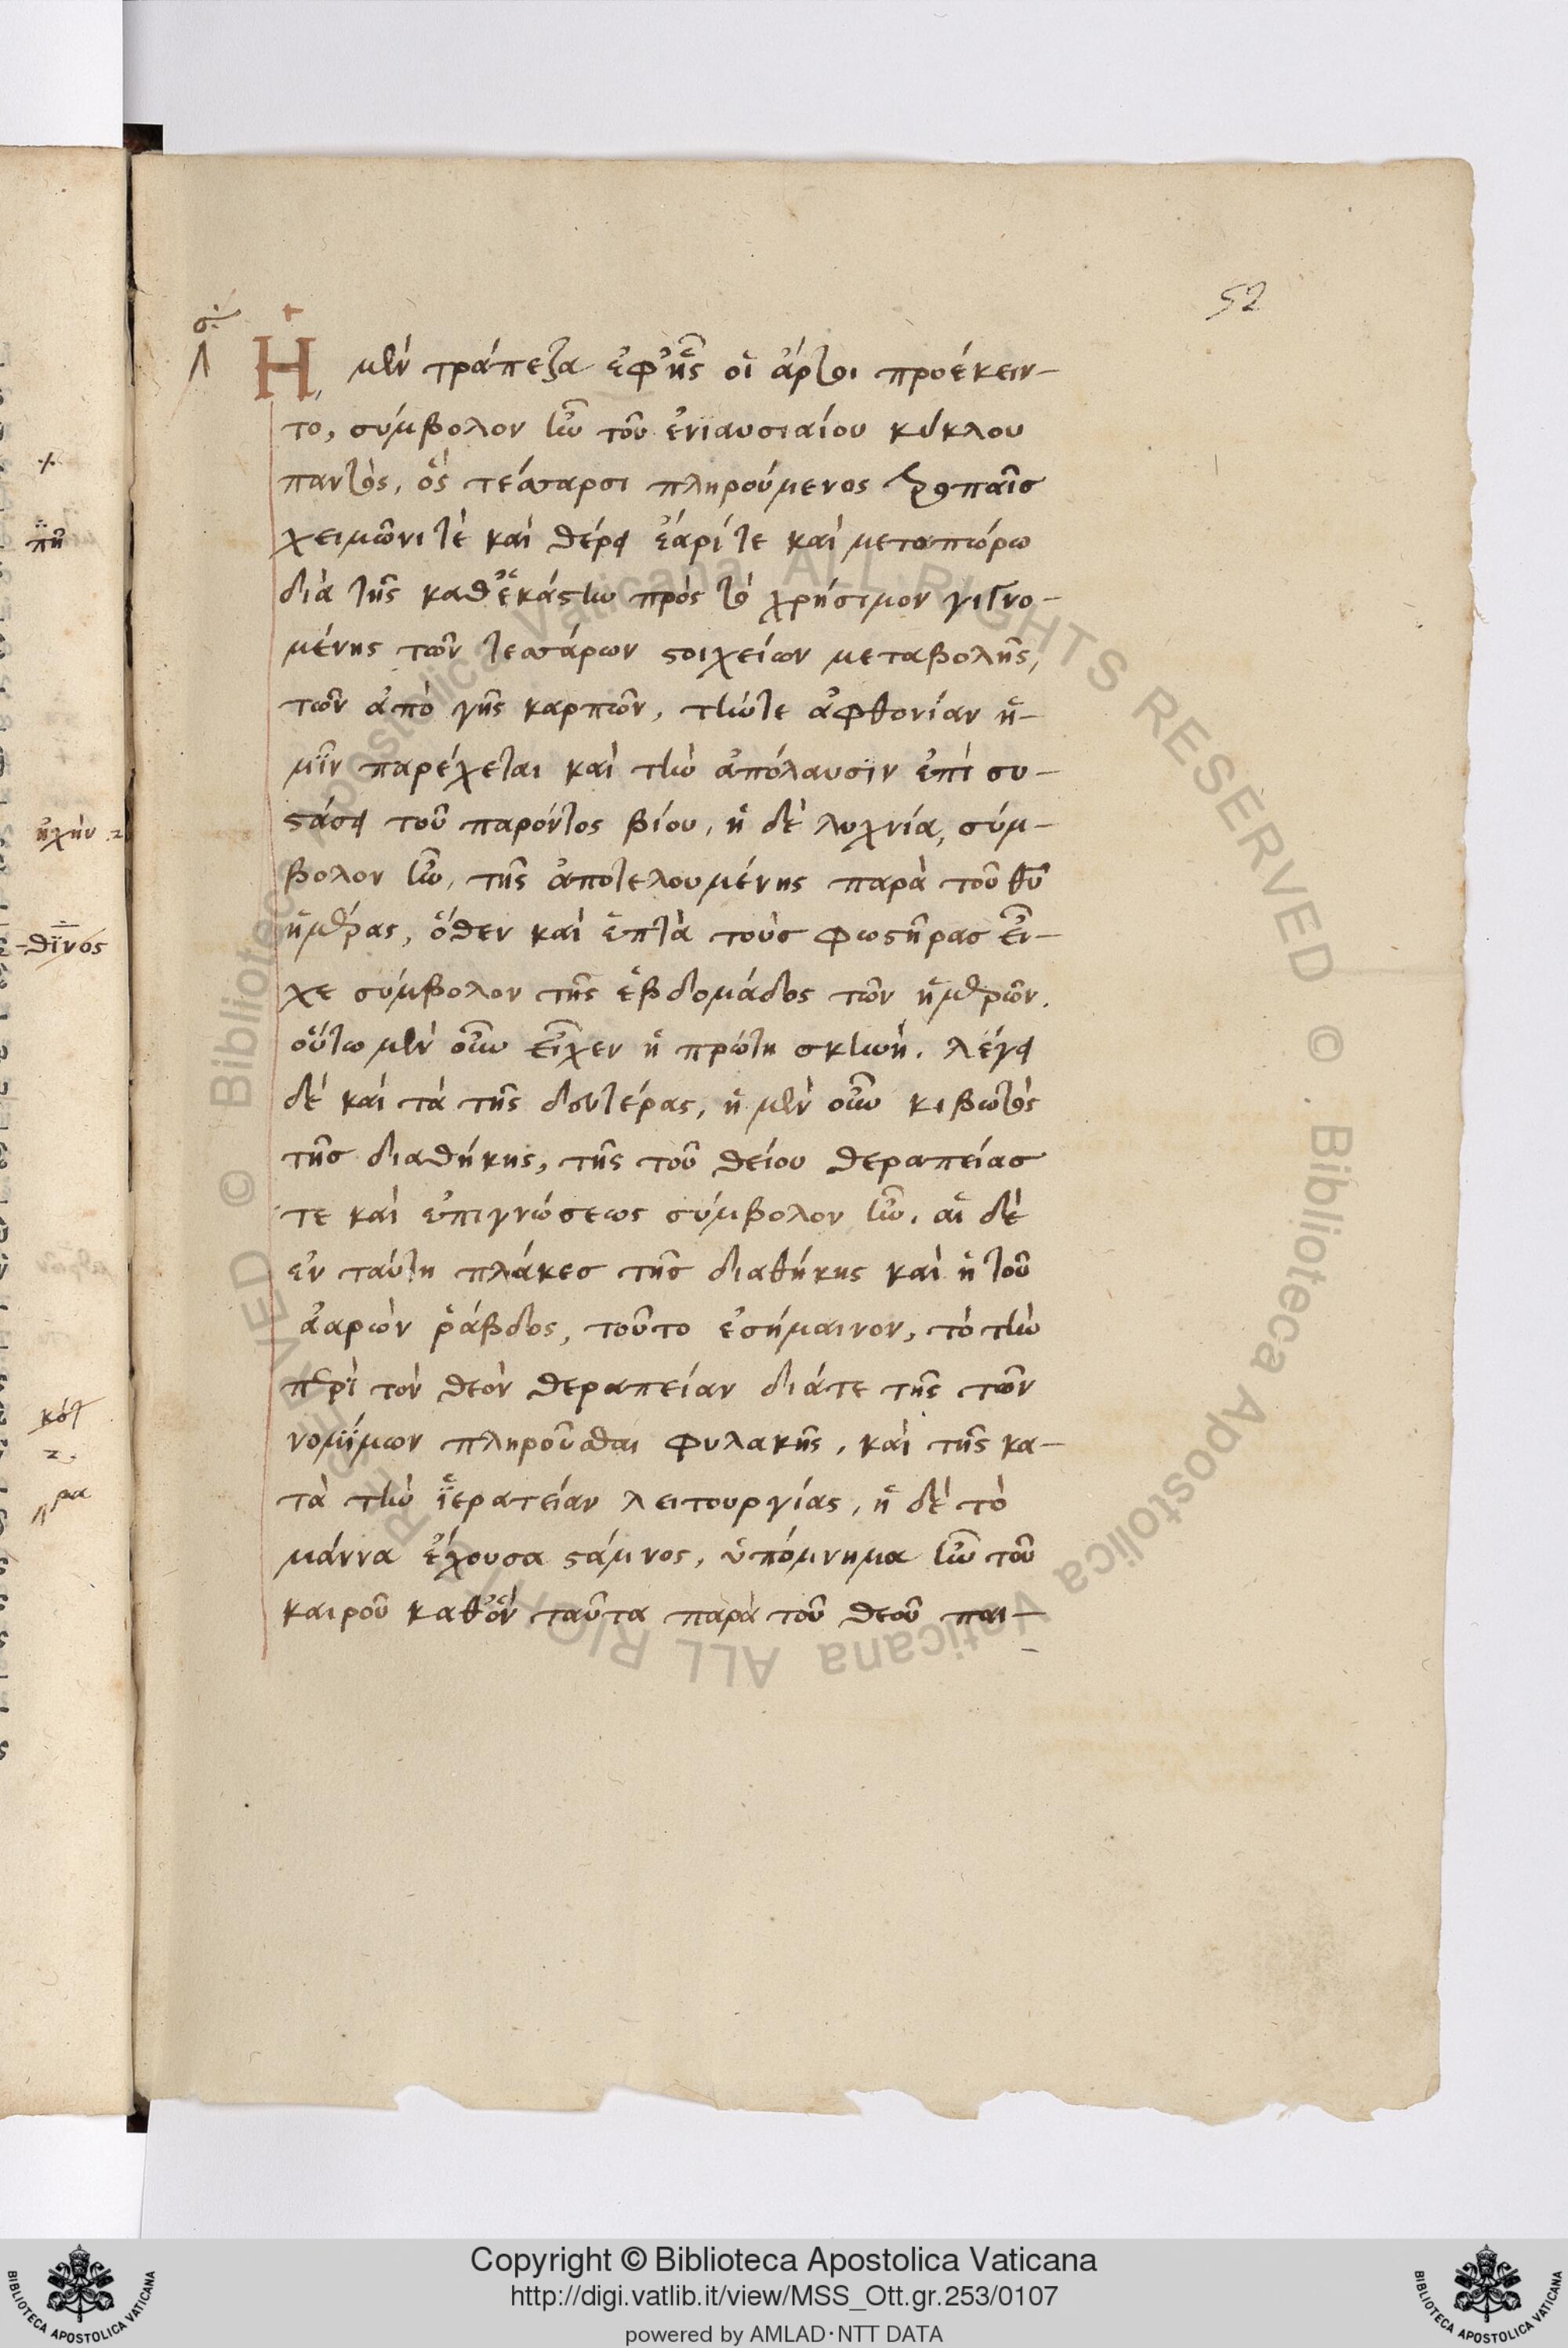 52
Ἡ μὲν τράπεζα ἐφ' ἧς οἱ ἄρτοι προέκειν-
το, σύμβολον ἦν τοῦ ἐνιαυσιαίου κύκλου
παντός, ὃς τέσσαρσι πληρούμενος τροπαῖς
χειμῶνι τὲ καὶ θέρει ἔαρί τε καὶ μετοπώρω
διὰ τῆς καθ' ἑκάστην πρὸς τὸ χρήσιμον γιγνο-
μένης τῶν τεσσάρων στοιχείων μεταβολῆς,
τῶν ἀπὸ γῆς καρπῶν, τήν τε ἀφθονίαν ἡ-
μῖν παρέχεται καὶ τὴν ἀπόλαυσιν ἐπὶ συ-
στάσει τοῦ παρόντος βίου, ἡ δὲ λυχνία, σύμ-
βολον ἦν, τῆς ἀποτελουμένης παρὰ τοῦ θυ
ἡμέρας, ὅθεν καὶ ἑπτὰ τοὺς φωστῆρας εἶ-
χε σύμβολον τῆς ἑβδομάδος τῶν ἡμερῶν.
οὕτω μὲν οὖν εἶχεν ἡ πρώτη σκηνή. λέγει
δὲ καὶ τὰ τῆς δευτέρας, ἡ μὲν οὖν κιβωτὸς
τῆς διαθήκης, τῆς τοῦ θείου θεραπείας
τε καὶ ἐπιγνώσεως σύμβολον ἦν. αἱ δὲ
ἐν ταύτη πλάκες τῆς διαθήκης καὶ ἡ τοῦ
ἀαρὼν ῥάβδος, τοῦτο ἐσήμαινον, τὸ τὴν
περὶ τὸν θεὸν θεραπείαν διά τε τῆς τῶν
νομίμων πληροῦσθαι φυλακῆς, καὶ τῆς κα-
τὰ τὴν ἱερατείαν λειτουργίας, ἡ δὲ τὸ
μάννα ἔχουσα στάμνος, ὑπόμνημα ἦν τοῦ
καιροῦ καθ' ὃν ταῦτα παρὰ τοῦ θεοῦ παι-
Copyright © Biblioteca Apostolica Vaticana
http://digi.vatlib.it/view/MSS_Ott.gr.253/0107
powered by AMLAD·NTT DATA